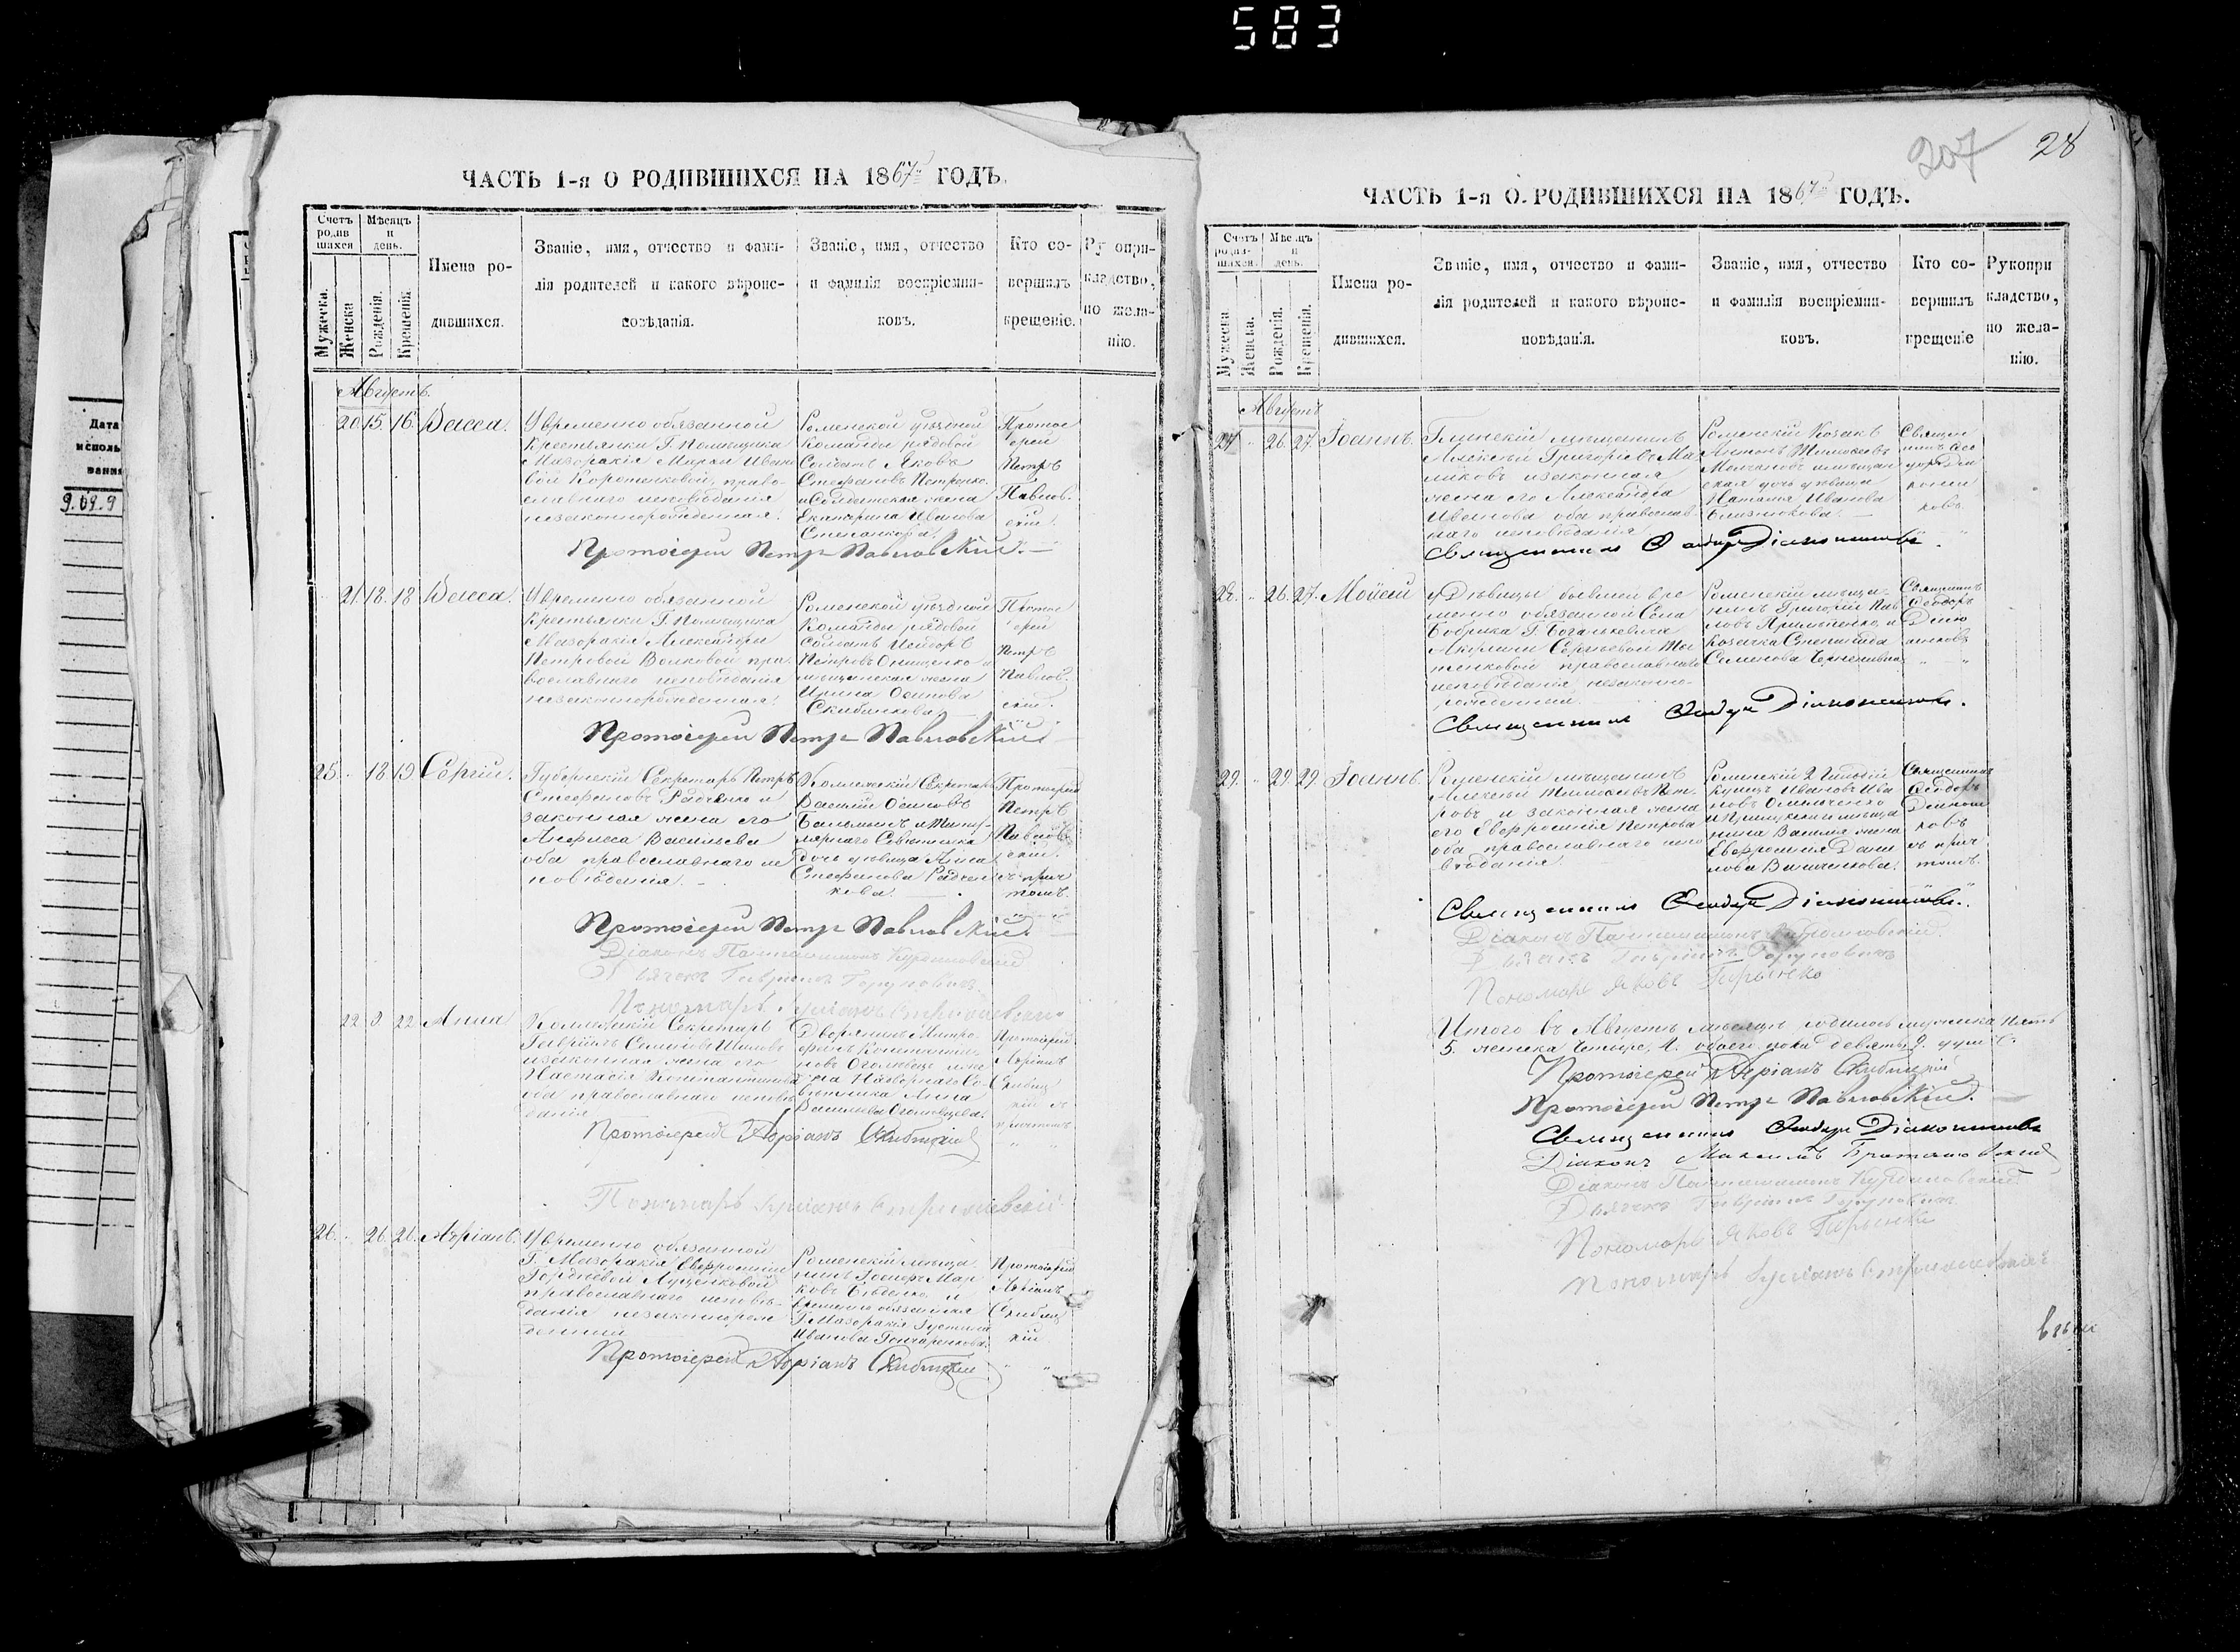 583
207
28
ЧАСТЬ 1-я О РОДИВШИХСЯ НА 1867 ГОДЪ.
Счетъ родив шихся
Мѣсяцъ и день.
Мужеска.
Женска
Рожденія.
Крещенія
Имена ро-
дившихся.
Званіе, имя, отчество и фами-
лія родителей и какого вѣроис-
повѣданія.
Званіе, имя, отчество
и фамилія воспріемни-
ковъ.
Кто со-
вершилъ
крещеніе.
Рукопри-
кладство,
по жела-
нію.
Августъ.
20. 15. 16. Васса.
У временно обязанной
крестьянки Г. Помѣщика
Мазоракія Марѳи Ивано
вой Коротенковой, право-
славнаго исповѣданія
незаконнорожденная.
Роменской уѣздной
Команды рядовой
Солдатъ Яковъ
Стефановъ Петренко
и Солдатская жена
Екатерина Иванова
Протоі
ерей
Петръ
Павлов-
скій.
Протоіерей Петръ Павловскій.
21. 18. 18 Васса.
У временно обязанной
Крестьянки Г. Помѣщика
Мазоракія Александры
Петровой Волковой пра-
вославнаго исповѣданія
незаконнорожденная.
Роменской уѣздной
Команды рядовой
Солдатъ Исидоръ
Петровъ Онищенко и
мѣщанская жена
Ирина Осипова
Скибинкова.
Протоі
ерей
Петръ
Павлов-
скій.
Протоіерей Петръ Павловскій
25. 18 19 Сергій.
Губернскій Секретарь Петръ
Стефановъ Радченко и
законная жена его
Анфиса Васильева
оба православнаго ис
повѣданія.
Коллежскій Секретарь
Василій Осиповъ
и Титу-
лярнаго Совѣтника
дочь дѣвица Анна
Стефанова Радчен
кова.
Протоіерей
Петръ
Павлов-
скій.
съ прич
томъ.
Протоіерей Петръ Павловскій.
Діаконъ Пантелеимонъ
Дьячекъ Гавріилъ
Пономарь
22. 9. 22 Анна
Коллежскій Секретарь
Гавріилъ Семеновъ
и законная жена его
Настасія Константинова
оба православнаго исповѣ
данія
Дворянинъ Митро
фанъ Константи-
новъ
на Надворнаго Со-
вѣтника Анна
Васильева
Протоіерей
Адріанъ
Скибиц
кій съ
причтомъ
Протоіерей Адріанъ Скибицкій
Пономарь
26. 26. 26. Адріанъ.
У временно обязанной
Г. Мазоракія Евфросиніи
Гордѣевой Луценковой
православнаго исповѣ-
данія незаконнорож
денный
Роменскій мѣща
нинъ Іосифъ Мар
ковъ и
временно обязанная
Г. Мазоракія Іустина
Иванова Гончаренкова.
Протоіерей
Адріанъ
Скибиц
кій
Протоіерей Адріанъ Скибицкій
ЧАСТЬ 1-я О РОДИВШИХСЯ НА 1867 ГОДЪ.
Счетъ родив-шихся.
Мѣсяцъ и день.
Мужеска.
Женска.
Рожденія.
Крещенія.
Имена ро-
дившихся.
Званіе, имя, отчество и фами-
лія родителей и какого вѣроис-
повѣданія.
Званіе, имя, отчество
и фамилія воспріемни-
ковъ.
Кто со-
вершилъ
крещеніе
Рукопри
кладство,
по жела-
нію.
Августъ
27. 26. 27. Іоаннъ.
Глинскій мѣщанинъ
Алексѣй Григорьевъ Ма
ликовъ и законная
жена его Александра
Иванова оба православ
наго исповѣданія
Роменскій Козакъ
Антонъ Тимоѳеевъ
Молчановъ и мѣщан
ская дочь дѣвица
Наталія Иванова
Близнюкова.
Священ
никъ Ѳео
доръ Дья
кони
ковъ
Священникъ Ѳеодоръ Діаконниковъ.
28. 26. 27. Моѵсей
у Дѣвицы бывшей вре
менно обязанной Села
Бобрика Г. Богаткевича
Акилины Сергѣевой
православнаго
исповѣданія незаконно-
рожденный
Роменскій мѣща-
нинъ Григорій Пав
ловъ и
Козачка Степанида
Семенова
Священникъ
Ѳеодоръ
Священникъ Ѳеодоръ Діаконниковъ.
29. 29 29 Іоаннъ.
Роменскій мѣщанинъ
Алексѣй Тимоѳеевъ Пет-
ровъ и законная жена
его Евфросинія Петрова
оба православнаго испо
вѣданія
Роменскій 2 Гильдіи
купецъ Иванъ Ива
новъ Омельченко
и мѣща
нина Василія жена
Евфросинія Дани
лова
Священникъ
Ѳеодоръ
ковъ
съ прич
томъ.
Священникъ Ѳеодоръ Діаконниковъ.
Діаконъ Пантелеимонъ
Дьячекъ Гавріилъ
Пономарь Яковъ
Итого въ Августѣ мѣсяцѣ родилось мужеска пять
5. женска четыре, 4. обоего пола девять 9. душъ.
Протоіерей Адріанъ Скибицкій
Протоіерей Петръ Павловскій.
Священникъ Ѳеодоръ Діаконниковъ
Діаконъ Максимъ
Діаконъ Пантелеимонъ
Дьячекъ Гавріилъ
Пономарь Яковъ
Пономарь
Дата
исполь
вания
9.09.9